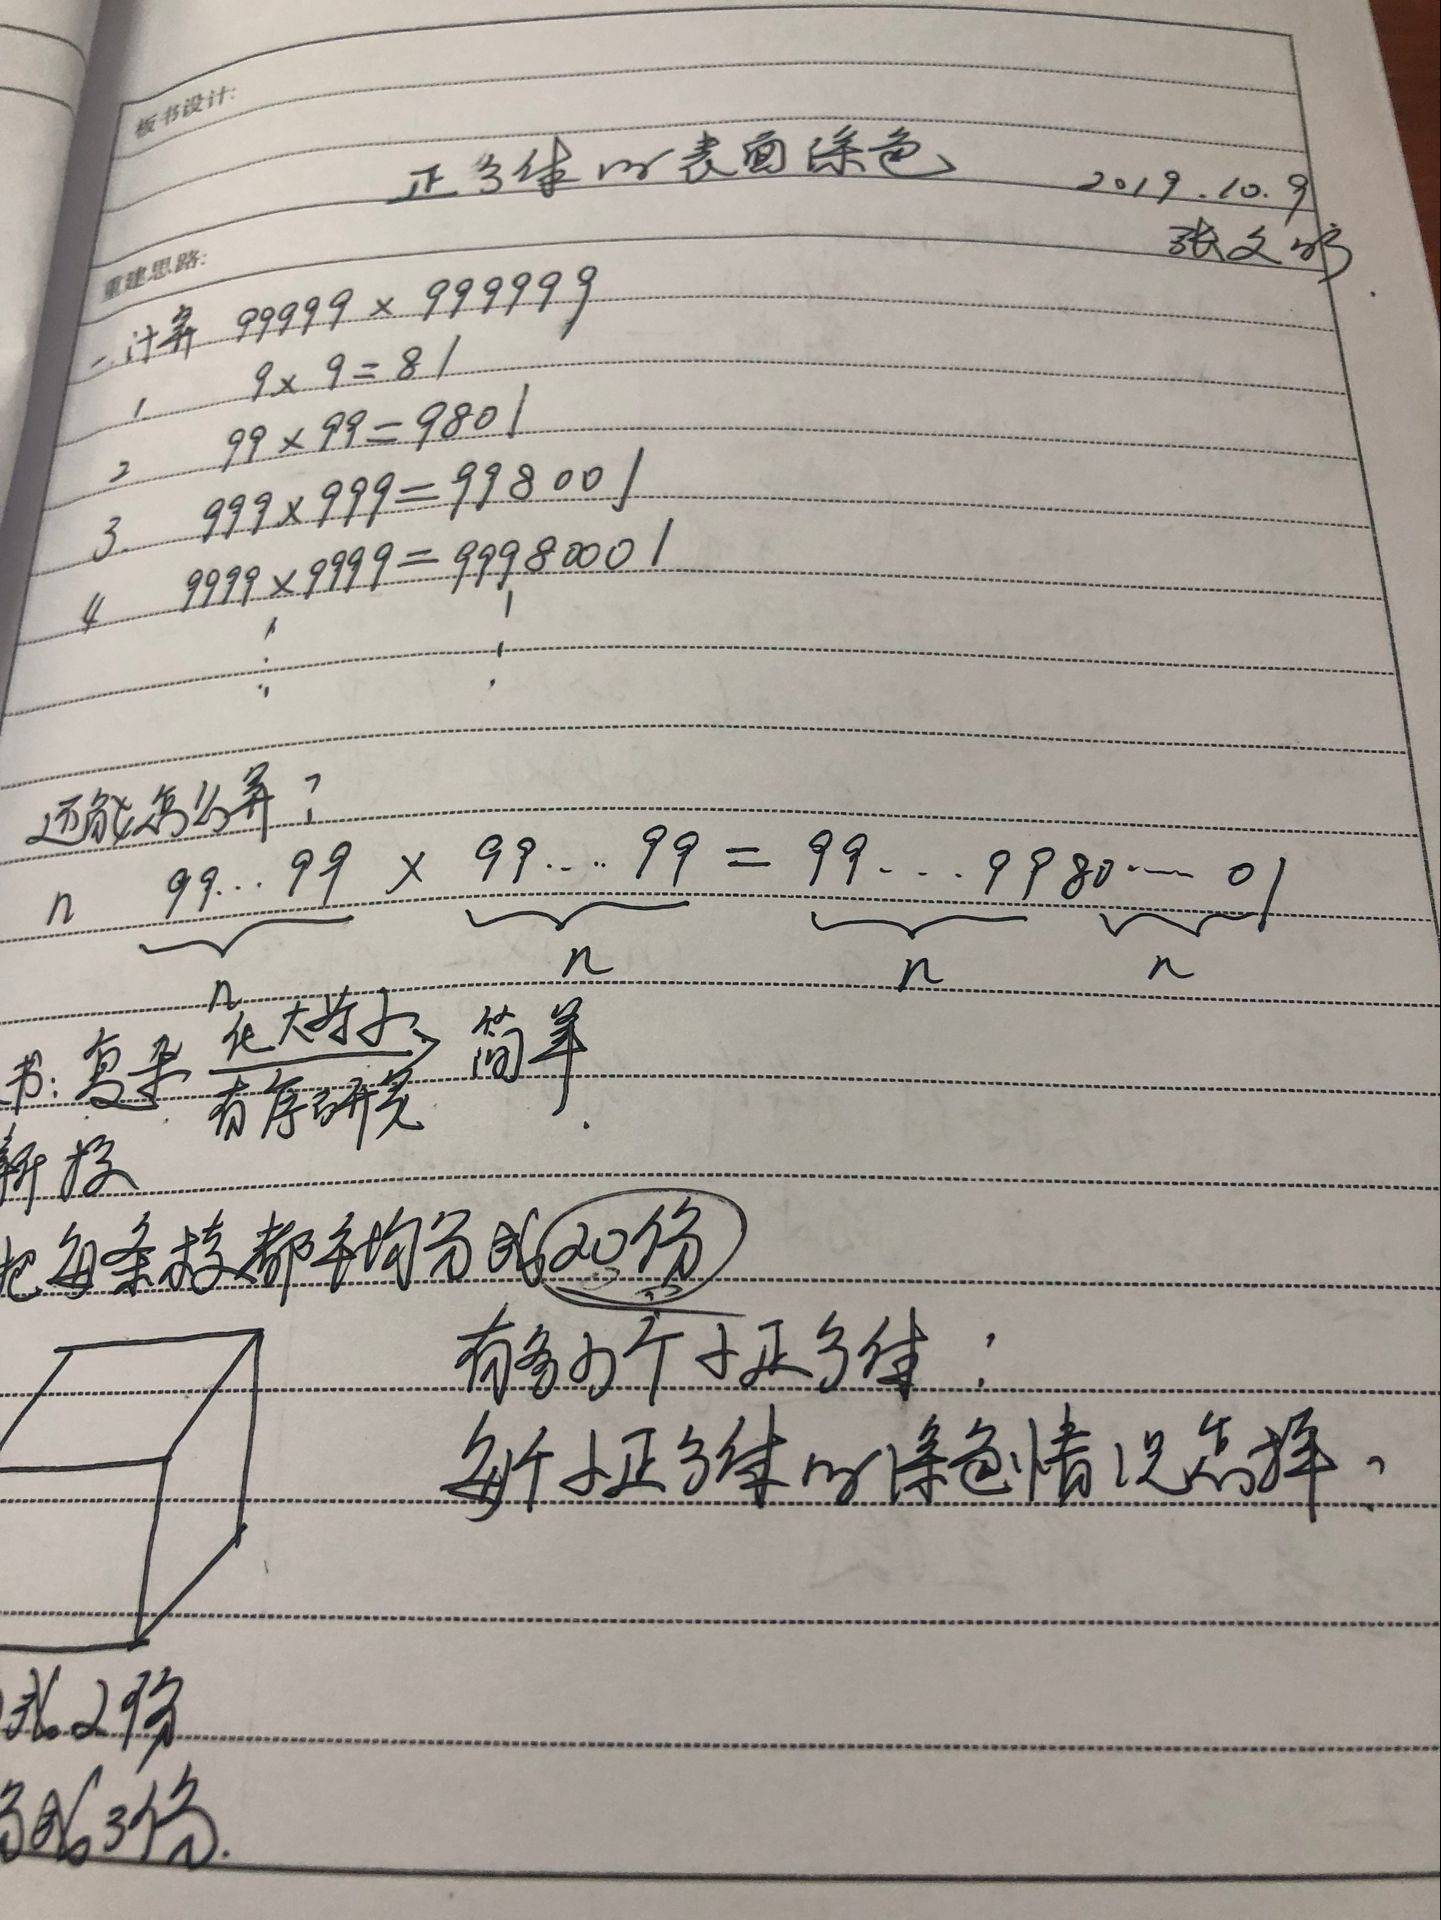 板书设计:
正方体的表面涂色
2019.10.9
张文
重建思路:
一计算 99999×999999
1 9×9=81
2 99×99=9801
3. 999×999=998001
4 9999×9999=99980001
还能怎么算?
n 99…99 × 99…99 = 99…9980…01
n n n n
书:复杂 化大为小 有序研究 简单.
新授
把每条棱都平均分成20份
有多少个小正方体?
每个小正方体的涂色情况怎样?
成2份
分成3份.